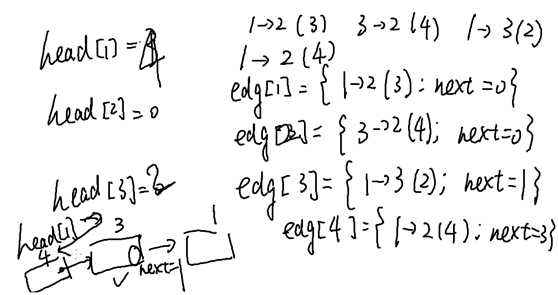 1→2 (3) 3→2 (4) 1→3 (2)
1→2 (4)
head[1]=4
edg[1]={1→2(3); next=0}
head[2]=0
edg[2]={3→2(4); next=0}
head[3]=2
edg[3]={1→3(2); next=1}
edg[4]={1→2(4); next=3}
head[1]
4 3 1
next=1